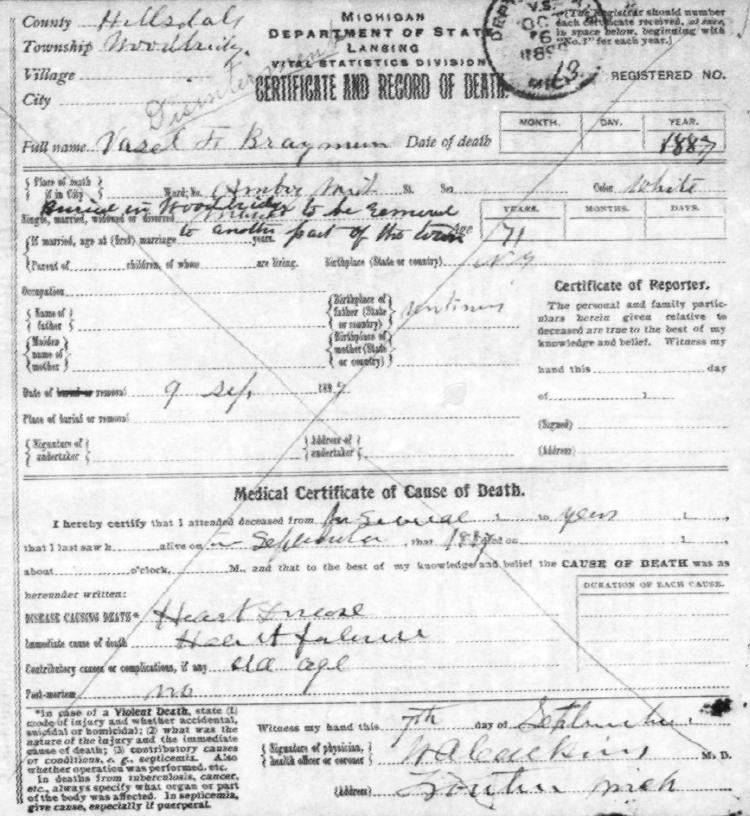 County Hillsdale
Township Woodbridge
Village
City
Disinterment
MICHIGAN
DEPARTMENT OF STATE
LANSING
VITAL STATISTICS DIVISION
CERTIFICATE AND RECORD OF DEATH.
DEPT
V.S.
MICH.
13.
[The Registrar should number
each certificate received, at once,
in space below, beginning with
"No. 1" for each year.]
REGISTERED NO.
Full name Date of death
MONTH. DAY. YEAR.
1887
Place of death if in City Ward; No. St. Sex Color White
Buried in Woodbridge to be removed
Single, married, widowed or divorced
to another part of the town
If married, age at (first) marriage years.
Age
YEARS. MONTHS. DAYS.
71
Parent of children, of whom are living. Birthplace (State or country) N.Y.
Occupation
Name of father
Birthplace of father (State or country)
Maiden name of mother
Birthplace of mother (State or country)
Certificate of Reporter.
The personal and family partic-
ulars herein given relative to
deceased are true to the best of my
knowledge and belief. Witness my
hand this day
of , 1
(Signed)
(Address)
Date of burial or removal 9 Sep. 1897
Place of burial or removal
Signature of undertaker
Address of undertaker
Medical Certificate of Cause of Death.
I hereby certify that I attended deceased from for several 1 to years 1 ,
that I last saw h alive on in September , that died on 1 ,
about o'clock, M., and that to the best of my knowledge and belief the CAUSE OF DEATH was as
hereunder written:
DURATION OF EACH CAUSE.
DISEASE CAUSING DEATH* Heart Disease
Immediate cause of death Heart failure
Contributory causes or complications, if any old age
Post-mortem no
*In case of a Violent Death, state (1)
mode of injury and whether accidental,
suicidal or homicidal; (2) what was the
nature of the injury and the immediate
cause of death; (3) contributory causes
or conditions, e. g., septicemia. Also
whether operation was performed, etc.
In deaths from tuberculosis, cancer,
etc., always specify what organ or part
of the body was affected. In septicemia,
give cause, especially if puerperal.
Witness my hand this 7th day of September
Signature of physician, health officer or coroner M. D.
(Address) Mich